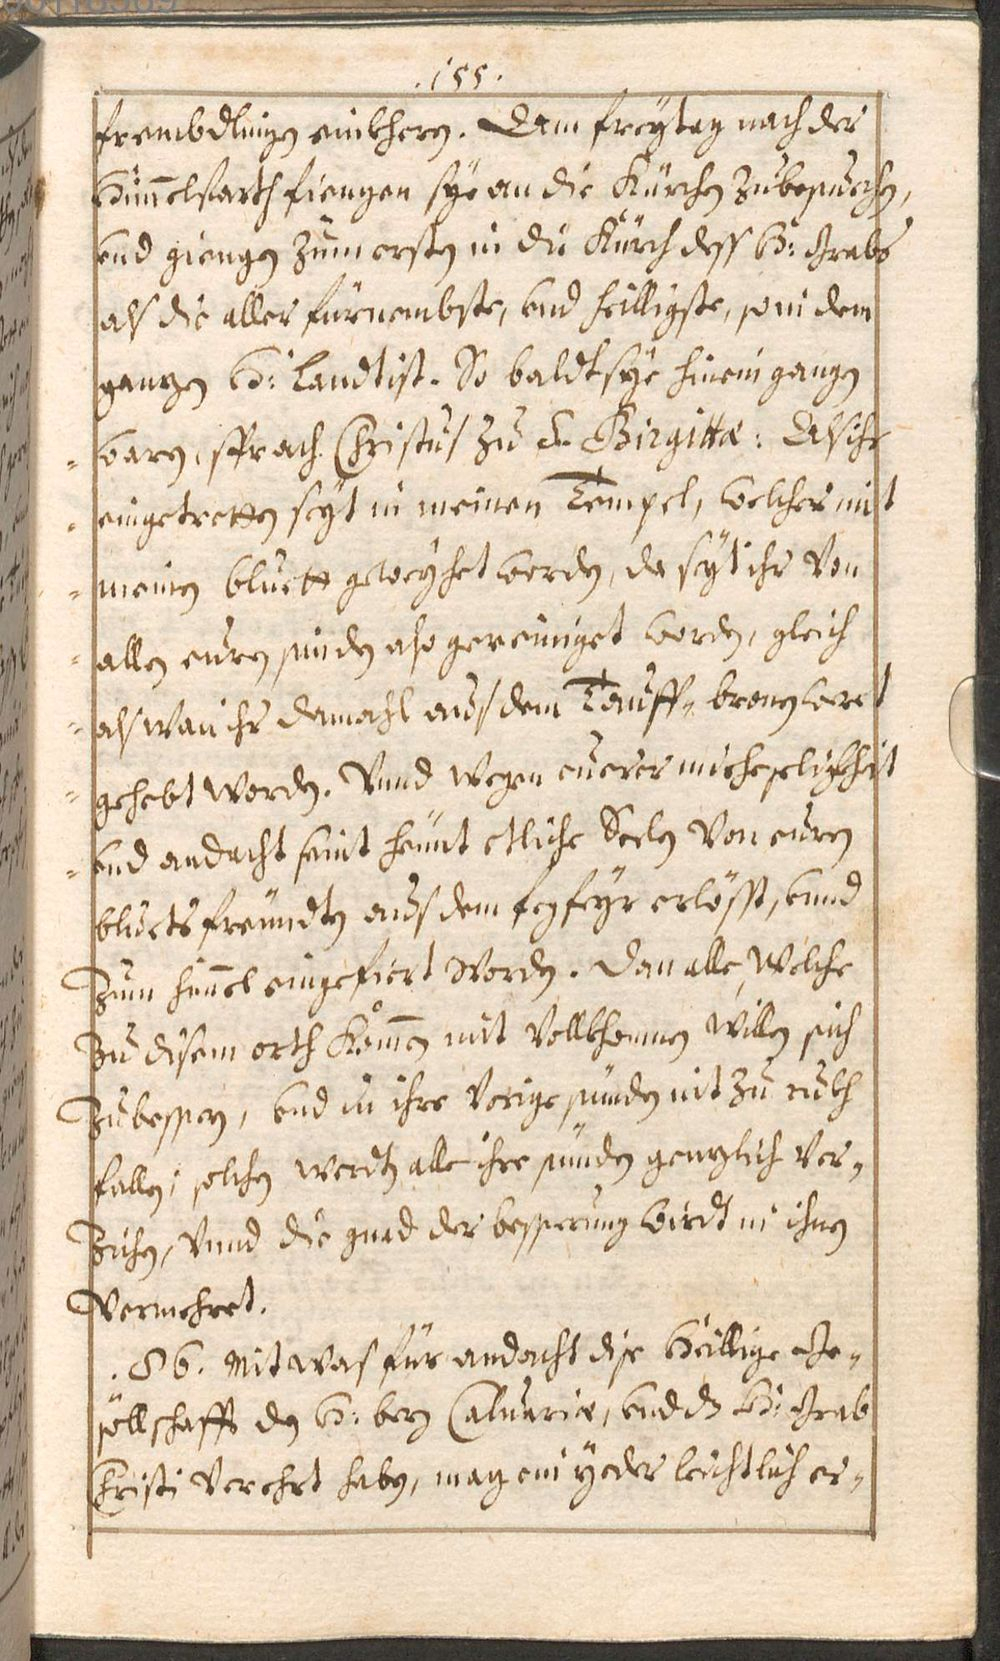 .155.
frembdlingen einkheren. Dem freytag nach der
Himmelfarth fiengen sye an die Kürchen zubesuechen,
und giengen zum ersten in die Kürch dess H: Grabs
als die aller fürnembste, und heilligste, so in dem
gantzen H: Landt ist. So baldt sye hinein gangen
waren, sprach Christus zu S. Birgittæ: Als ihr
eingetretten seyt in meinen Tempel, welcher mit
meinen bluett geweyhet worden, da seyt ihr von
allen euren sünden also gereiniget worden, gleich
als wan ihr damahl aus dem Tauff-bronen weret
gehebt worden. Vnnd wegen euerer müehseligkheit
und andacht seint heünt etliche Seelen von euren
bluets freündten aus dem fegfeyr erlösst, unnd
zum himmel eingefiert worden. Dan alle, welche
zu disem orth kommen mit vollkhomnen willen sich
zubessren, und in ihre vorige sünden nit zu rukh
fallen; solchen werdten alle ihre sünden gentzlich ver-
zihen, vnnd die gnad der besserung wirdt in ihnen
vermehret.
.86. Mit was für andacht dise Heillige Ge-
söllschafft den H: berg Caluariæ, und dz H: Grab
Christi verehrt haben, mag ein yeder leichtlich er-